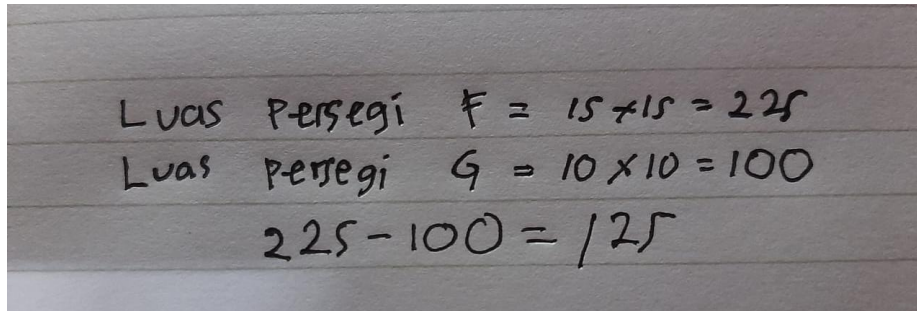 Luas Persegi F = 15 x 15 = 225
Luas Persegi G = 10 x 10 = 100
225 - 100 = 125